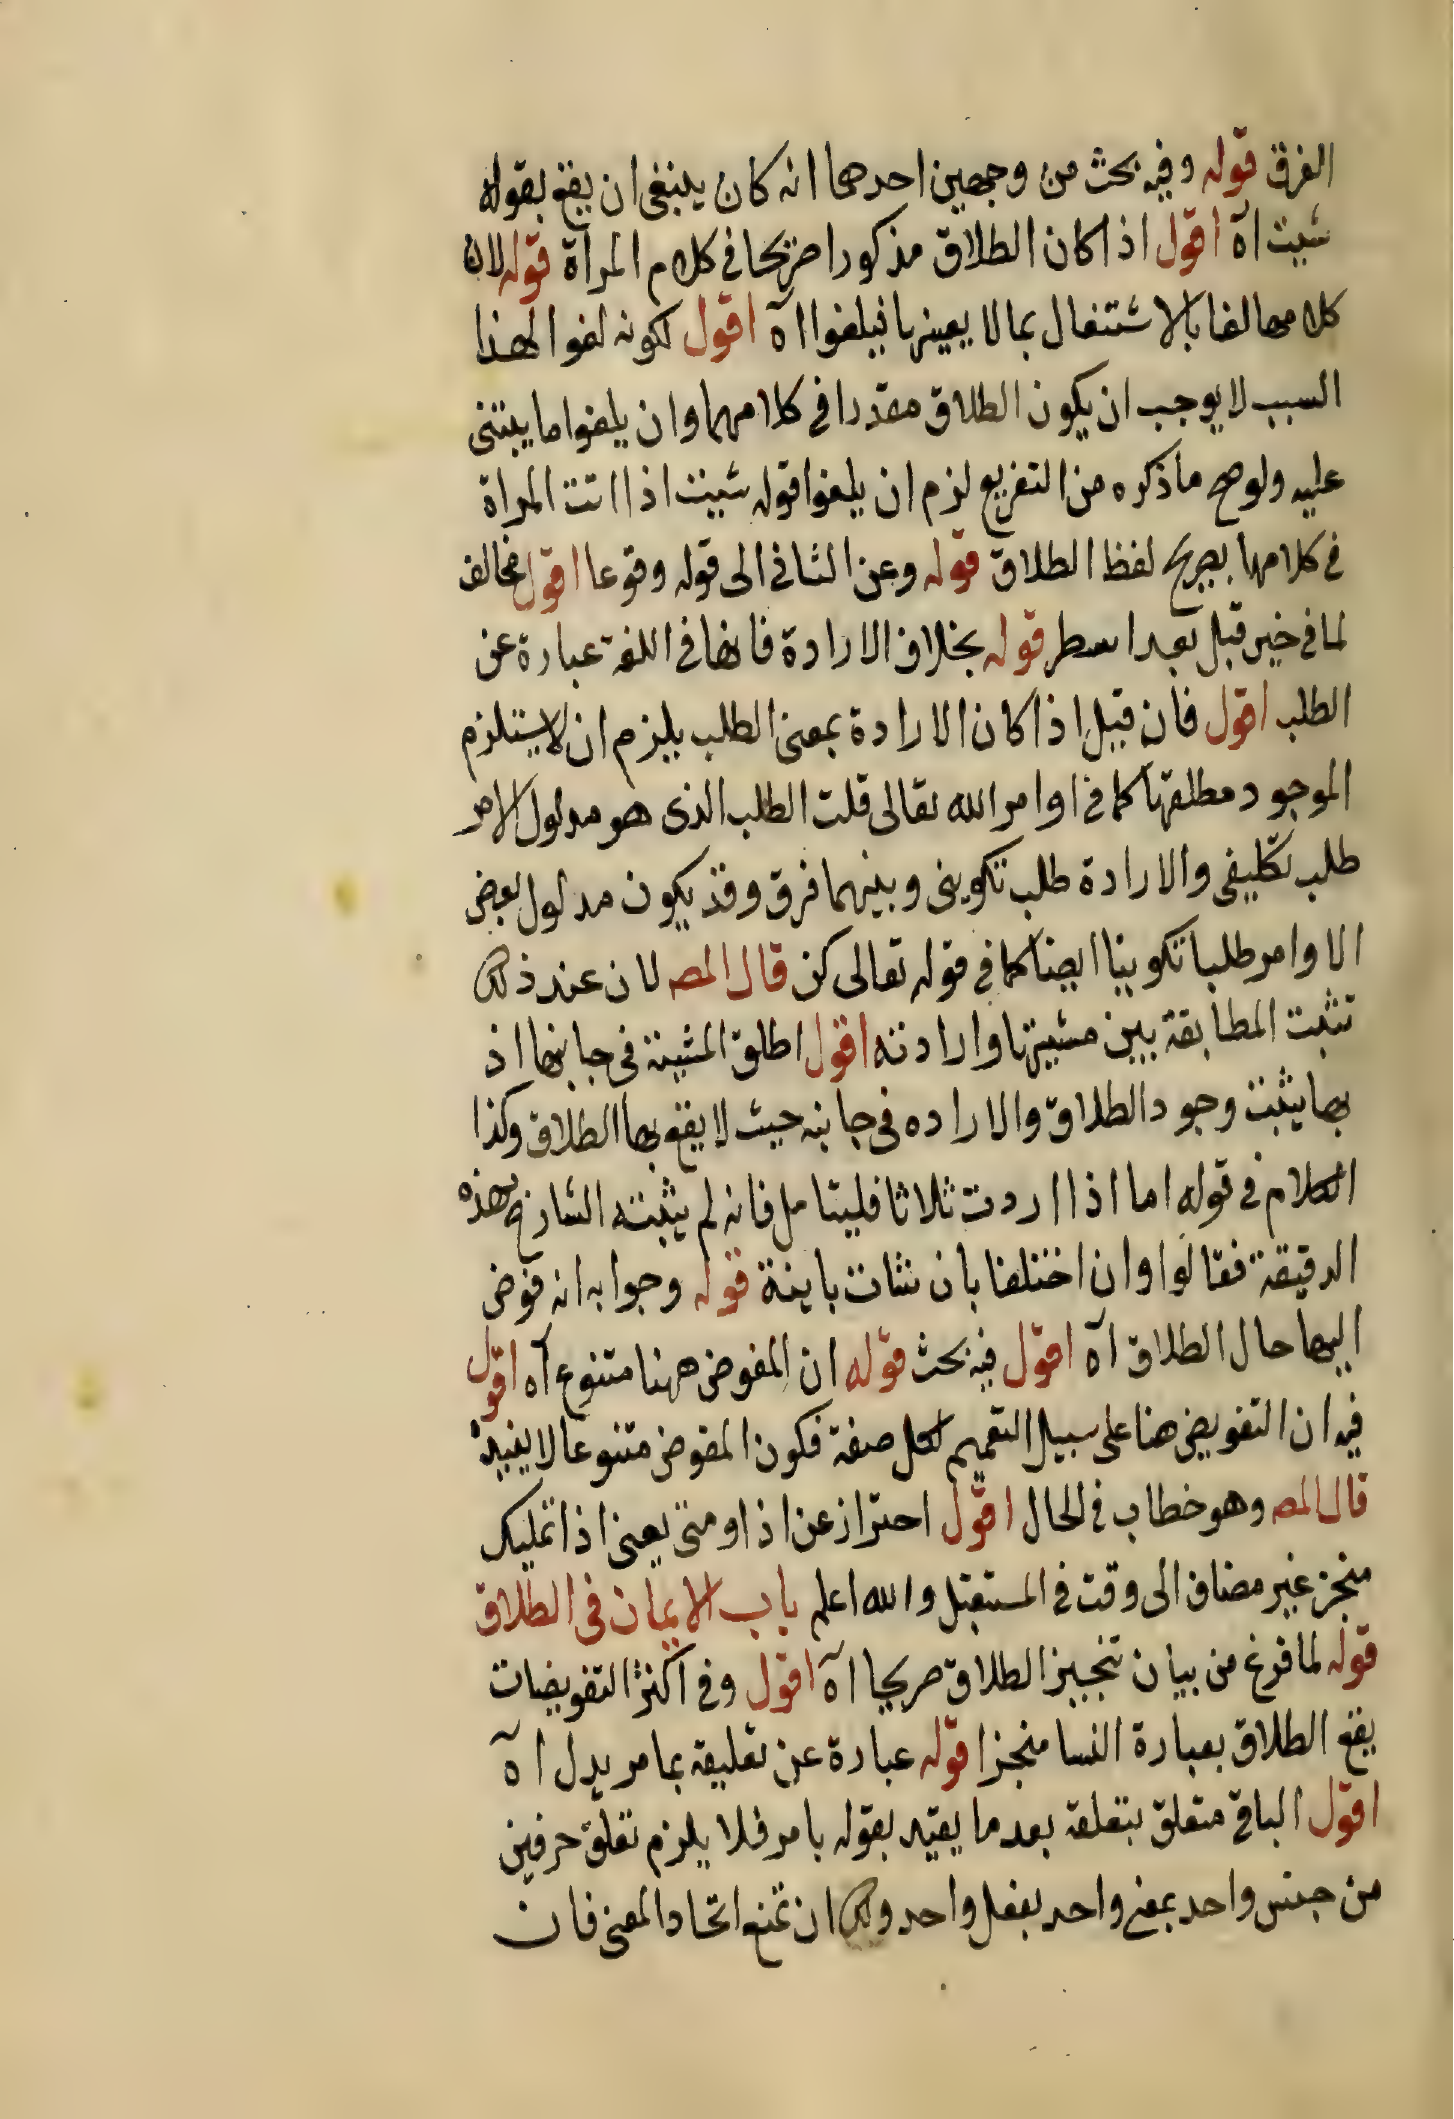 الفرق قوله وفيه بحث من وجهين احدهما انه كان ينبغى ان يقع بقوله
شيت اه اقول اذا كان الطلاق مذكورا صريحا في كلام المرأة قوله لان
كلامها لغا بالاشتغال بما لا يعينها فيلغوا اه اقول كونه لغوا لهذا
السبب لا يوجب ان يكون الطلاق مقدرا في كلامهما وان يلغوا ما يبتنى
عليه ولو صح ما ذكره من التفريع لزم ان يلغوا قوله شيت اذا اتت المراة
في كلامها بصريح لفظ الطلاق قوله وعن الثاني الى قوله وقوعا اقول مخالف
لما في خير قبل بعد اسطر قوله بخلاف الارادة فانها في اللغة عبارة عن
الطلب اقول فان قيل اذا كان الارادة بمعنى الطلب يلزم ان لا يستلزم
الموجود مطلقها كما في اوامر الله تعالى قلت الطلب الذى هو مدلول الامر
طلب تكليفى والارادة طلب تكوينى وبينهما فرق وقد يكون مدلول بعض
الاوامر طلبا تكوينا ايضا كما في قوله تعالى كن قال المصـ لان عند ذلك
تثبت المطابقة بين مشيتها وارادته اقول اطلق المشية في جانبها اذ
بها يثبت وجود الطلاق والاراده في جانبه حيث لا يقع بها الطلاق وكذا
الكلام في قوله اما اذا اردت ثلاثا فليتامل فانه لم يثبته الشارح بهذه
الدقيقة فقالوا وان اختلفا بان شات باينة قوله وجوابه انه فوض
اليها حال الطلاق اه اقول فيه بحث قوله ان المفوض ههنا متنوع اه اقول
فيه ان التفويض هنا على سبيل التعميم لكل صفة فكون المفوض متنوعا لا يفيده
قال المصـ وهو خطاب في الحال اقول احتراز عن اذا ومتى يعنى اذا تمليك
منجز غير مضاف الى وقت في المستقبل والله اعلم باب الايمان في الطلاق
قوله لما فرغ من بيان تنجيز الطلاق صريحا اه اقول وفي اكثر التفويضات
يقع الطلاق بعبارة النسا منجزا قوله عبارة عن تعليقه بما مر يدل اه
اقول الباقي متعلق بتعلقه بعد ما يقيد بقوله بامر فلا يلزم تعلق حرفين
من جنس واحد بمعنى واحد بفعل واحد ولك ان تمنع اتحاد المعنى فان